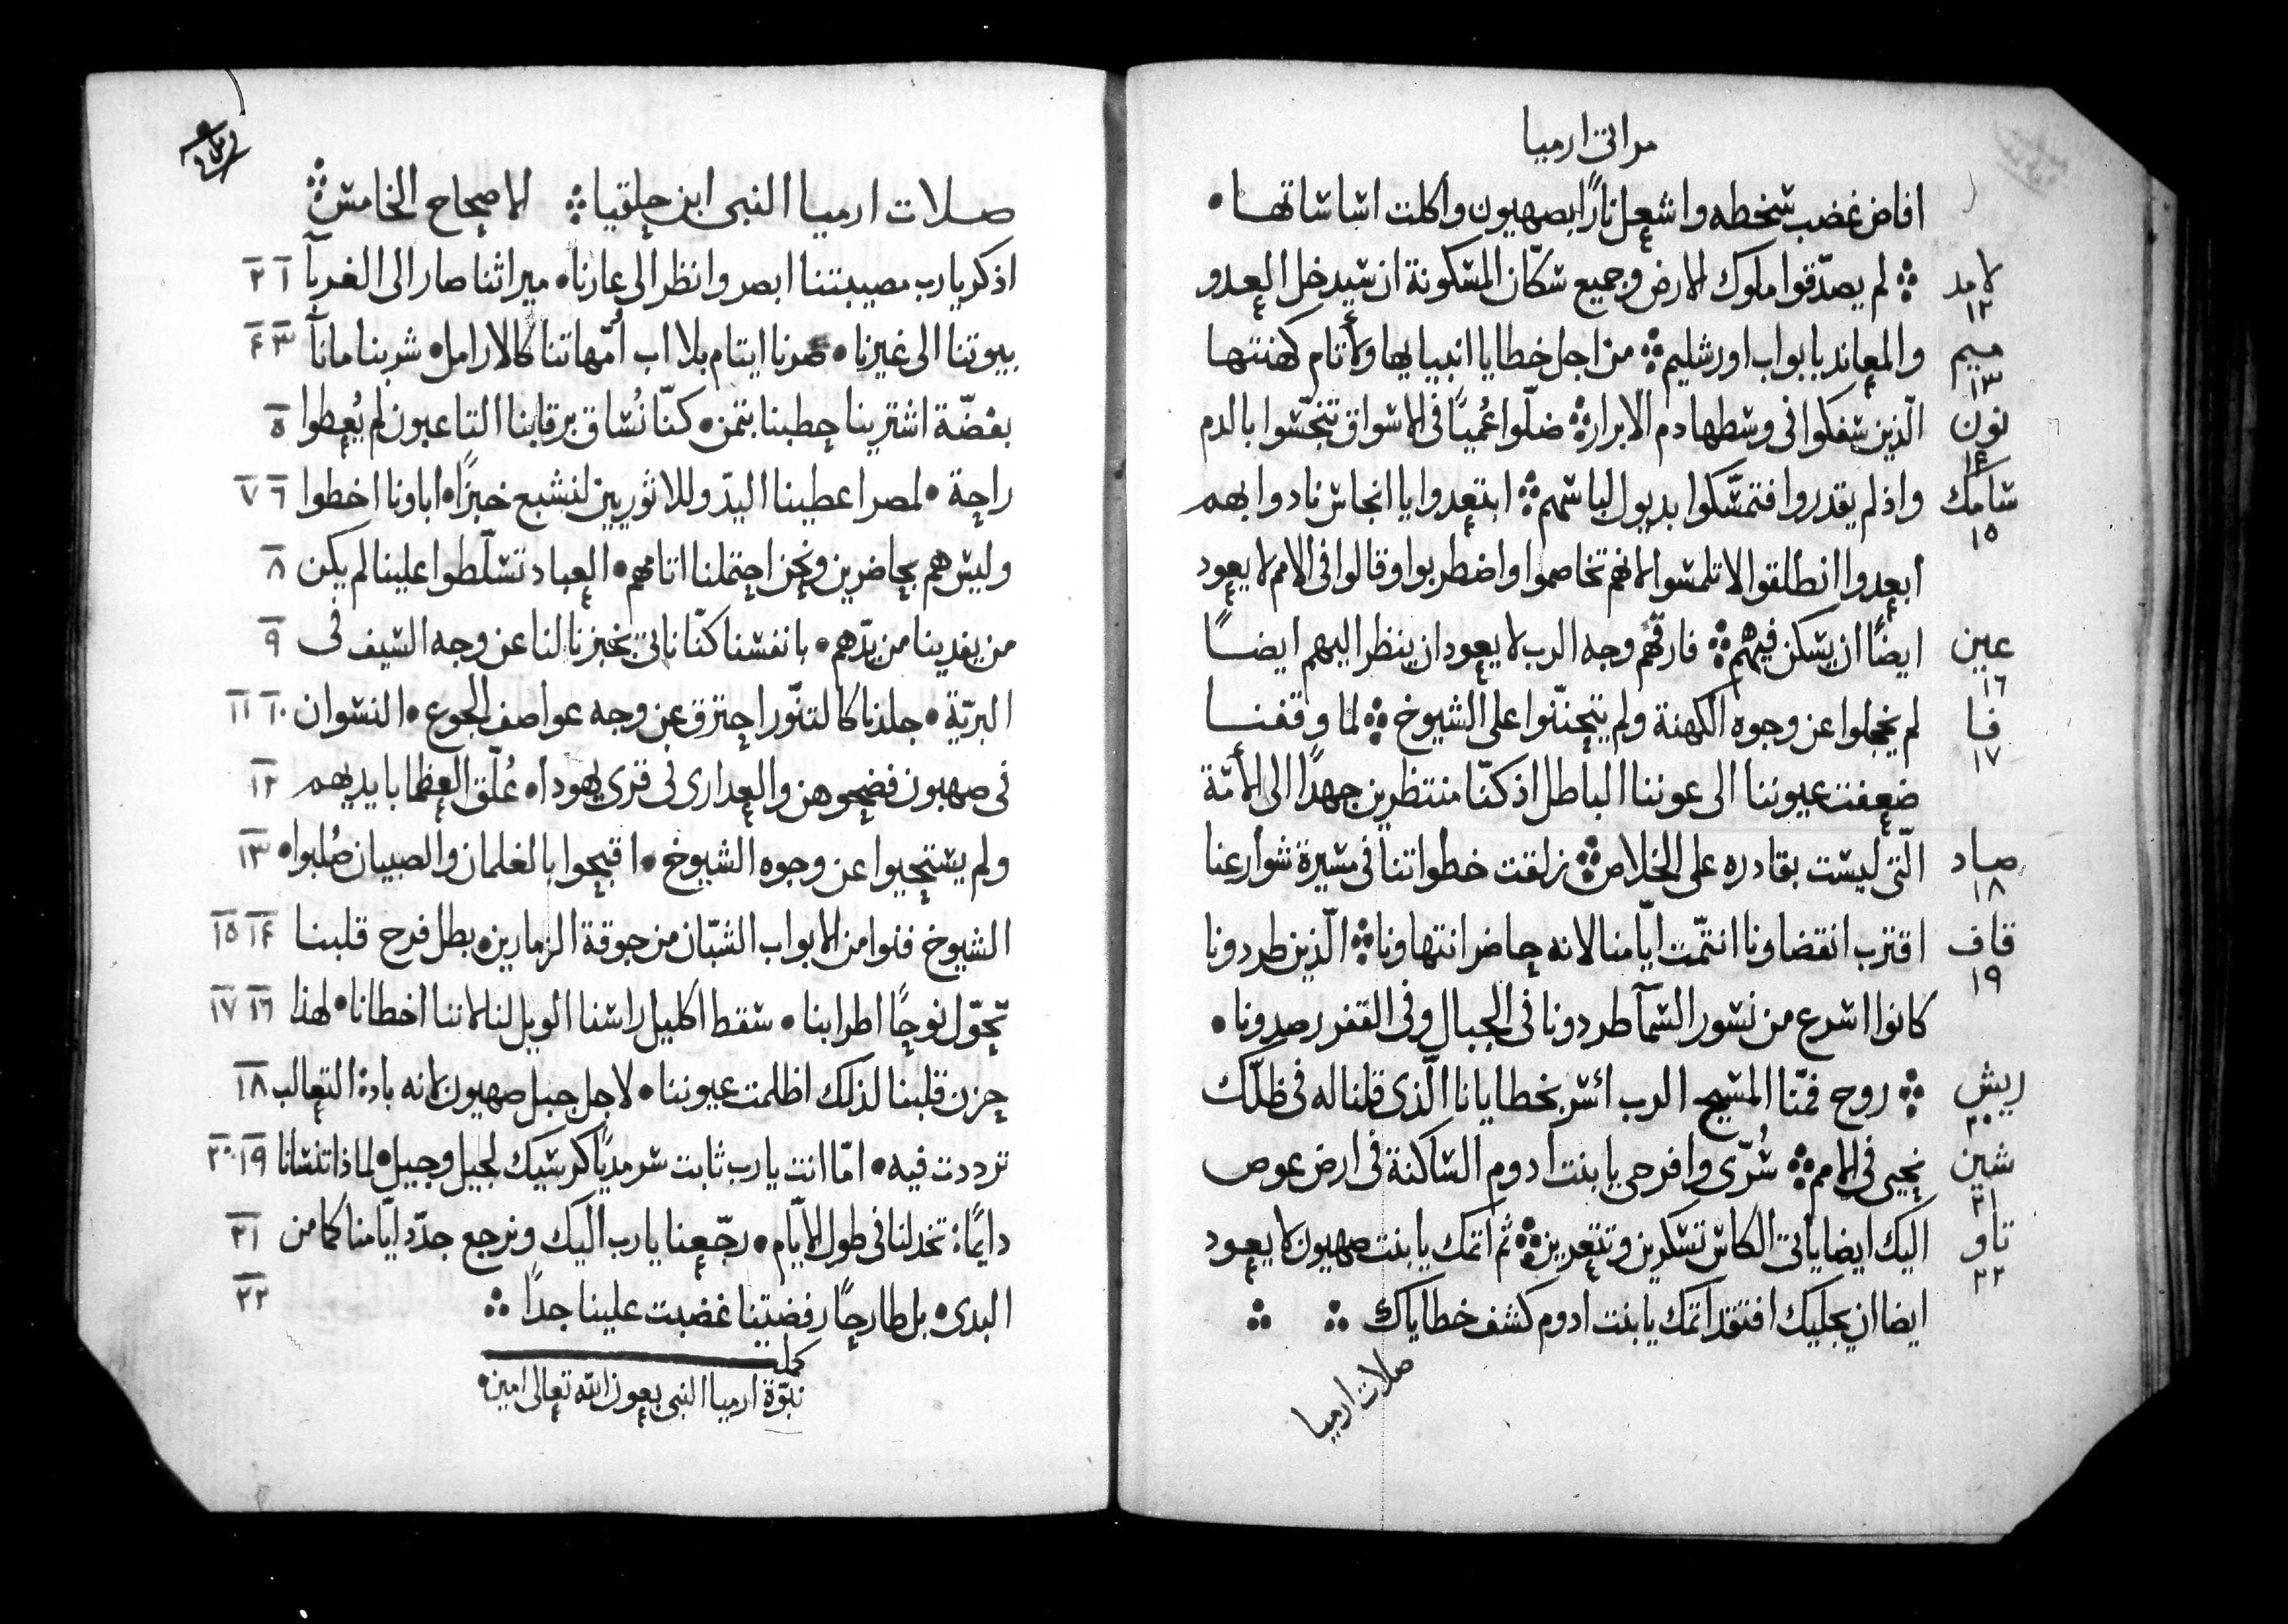 مراثي ارميا
افاض غضب سخطه واشعل نارًا بصهيون واكلت اساساتها •
لامد ١٢ لم يصدّقوا ملوك الارض وجميع سكّان المسكونة ان سيدخل العدو
ميم ١٣ والمعاند بابواب اورشليم من اجل خطايا انبيايها ولأثام كهنتها
نون ١٤ الّذين سفكوا في وسطها دم الابرار ضلّوا عُميًا في الاسواق تنجّسوا بالدم
سامك ١٥ واذ لم يقدروا فتمسّكوا بديول لباسهم ابتعدوا يا انجاس نادوا بهم
ابعدوا انطلقوا لا تلمسوا لانهم تخاصموا واضطربوا وقالوا في الامم لا يعود
عين ١٦ ايضًا ان يسكن فيهم فارقهم وجه الرب لا يعود ان ينظر اليهم ايضًا
فا ١٧ لم يخجلوا عن وجوه الكهنة ولم يتحنّنوا على الشيوخ لما وقفنا
ضعفت عيوننا الى عوننا الباطل اذ كنّا منتظرين جهدًا الى الأمّة
صاد ١٨ الّتي ليست بقادره على الخلاص زلقت خطواتنا في مسيرة شوارعنا
قاف ١٩ اقترب انقضاونا انتمّت ايّامنا لانه حاضر انتهاونا الّذين طردونا
كانوا اسرع من نسور السمآ طردونا في الجبال وفي القفر رصدونا •
ريش ٢٠ روح فمّنا المسيح الرب أسر بخطايانا الّذي قلنا له في ظلّك
شين ٢١ نحيى في الامم سُرّي وافرحي يا بنت ادوم الساكنة في ارض عوص
تاو ٢٢ اليك ايضا ياتي الكاس تسكرين وتتعرين تم اثمك يا بنت صهيون لا يعود
ايضا ان يجليك افتقد اثمك يا بنت ادوم كشف خطاياك
صلات ارميا
صلات ارميا النبي ابن حلقيا الاصحاح الخامس
اذكر يا رب مصيبتنا ابصر وانظر الى عارنا • ميراثنا صار الى الغربآ ١ ٢
بيوتنا الى غيرنا • صرنا ايتام بلا اب أمّهاتنا كالارامل • شربنا مانآ ٣ ۴
بفضّة اشترينا حطبنا بثمن • كنّا نُساق برقابنا التاعبون لم يُعطوا ٥
راحة • لمصر اعطينا اليدّ وللاثوريين لنشبع خبزًا • اباونا اخطوا ٦ ٧
وليس هم بحاضرين ونحن احتملنا اثامهم • العباد تسلّطوا علينا لم يكن ٨
من يفدينا من يدّهم • بانفسنا كنّا ناتي بخبزنا لنا عن وجه السيف في ٩
البريّة • جلدنا كالتنّور احترق عن وجه عواصف الجوع • النسوان ١٠ ١١
في صهيون فضحوهن والعدارى في قرى يهودا • عُلّق العظما بايديهم ١٢
ولم يستحيوا عن وجوه الشيوخ • اقبحوا بالغلمان والصبيان صُلبوا • ١٣
الشيوخ فنوا من الابواب الشبّان من جوقة الزمارين • بطل فرح قلبنا ١۴ ١٥
تحوّل نوحًا اطرابنا • سقط اكليل راسنا الويل لنا لاننا اخطانا • لهذا ١٦ ١٧
حزن قلبنا لذلك اظلمت عيوننا • لاجل جبل صهيون لانه باد • الثعالب ١٨
ترددت فيه • امّا انت يا رب ثابت سرمديًا كرسيك لجيل وجيل • لماذا تنسانا ١٩ ٢٠
دايمًا • تخدلنا في طول الايّام • رجّعنا يا رب اليك ونرجع جدّد ايّامنا كما من ٢١
البدى • بل طارحًا رفضتنا غضبت علينا جدًا ٢٢
كمل
نبوّة ارميا النبي بعون الله تعالى امين •